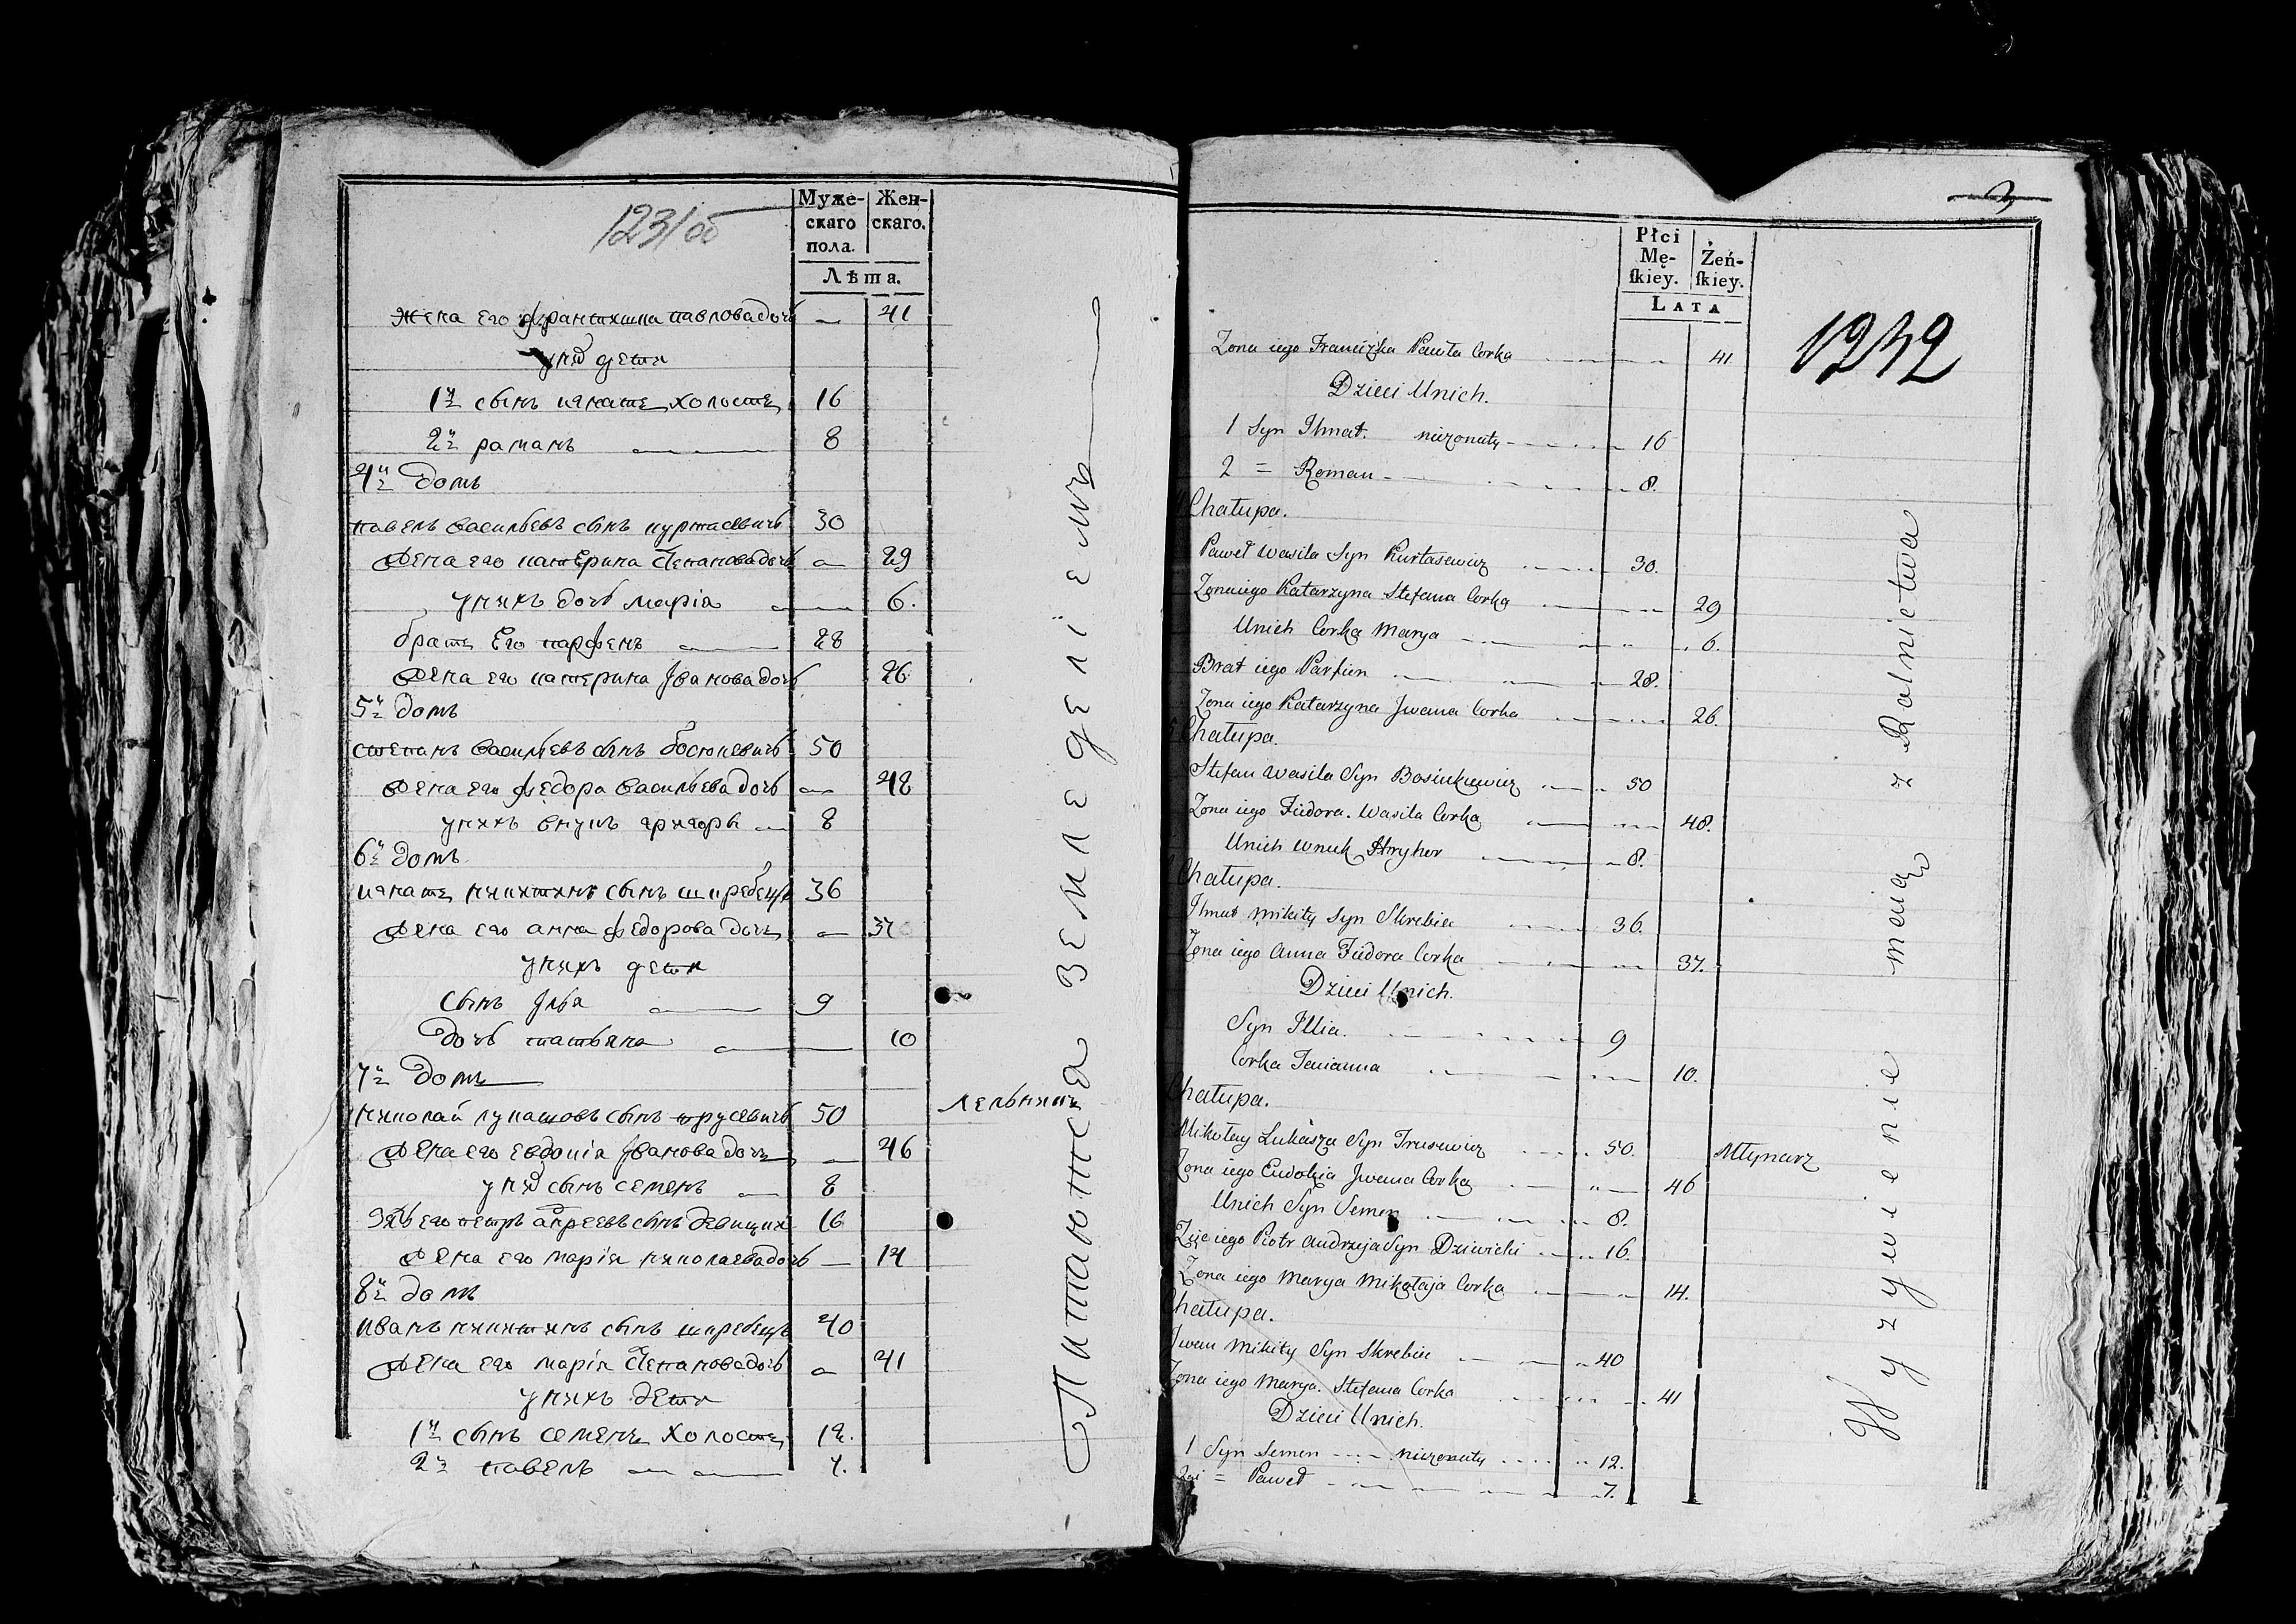 123/об
Муже-
скаго
пола.
Жен-
скаго.
Лѣта.
Жена его франтишка павлова дочь — 41
у них дети
1й сынъ игнатъ холостъ 16
2й раманъ 8
4й домъ
павелъ васильевъ сынъ куртасевичъ 30
Жена его катерина степанова дочь 29
у нихъ дочь марiя 6.
братъ Его парфенъ 28
Жена его катерина Iванова дочь 26
5й домъ
степанъ васильевъ сынъ босюкевичъ 50
Жена его федора васильева дочь 48
у нихъ внукъ григоры 8
6й домъ
игнатъ никитинъ сынъ шкребецъ 36
Жена его анна федорова дочь 37
у нихъ дети
сынъ Iлья 9
дочь татьяна 10
7й домъ
николай лукашовъ сынъ трусевичъ 50 мельникъ
Жена его евдокiя Iванова дочь 46
у них сынъ семенъ 8
Зять его петръ андреевъ сынъ 16
Жена его марiя николаева дочь 14
8й домъ
иванъ никитинъ сынъ шкребецъ 40
Жена его марiя степанова дочь 41
у нихъ дети
1й сынъ семенъ холостъ 12.
2й павелъ 7.
Питаются земледелiемъ
2
Płci
Mę-
skiey.
Żeń-
skiey.
Lata
1232
Zona iego Franciszka Pawła Corka 41
Dzieci Unich.
1 Syn Ihnat. nieżonaty 16
2 = Roman 8.
Chałupa.
Paweł Wasila Syn Kurtasewicz 30.
Zona iego Katarzyna Stefana Corka 29
Unich Corka Marya 6.
Brat iego Parfien 28.
Zona iego Katarzyna Jwana Corka 26.
Chałupa.
Stefan Wasila Syn Bosiukiewicz 50
Zona iego Fiedora. Wasila Corka 48.
Unich wnuk Hryhor 8.
Chałupa.
Ihnat Mikity Syn Skrebiec 36.
Zona iego Anna Fiedora Corka 37.
Dzieci Unich.
Syn Illia. 9
Corka Tacianna 10.
Chałupa.
Mikołay Łukasza Syn Trusewicz 50. Młynarz
Zona iego Eudokia Jwana Corka 46
Unich Syn Semen 8.
Zięc iego Piotr Andrzeja Syn Dziewicki 16.
Zona iego Marya Mikołaja Corka 14.
Chałupa.
Jwan Mikity Syn Skrebiec 40
Zona iego Marya. Stefana Corka 41
Dzieci Unich.
1 Syn Semen nieżonaty 12.
2gi = Paweł 7.
Wyzywienie maią z Rolnictwa